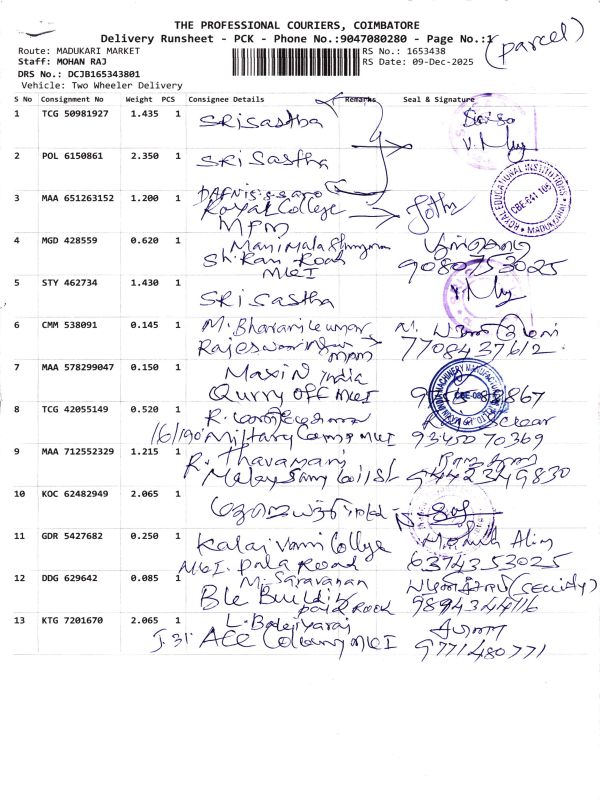 THE PROFESSIONAL COURIERS, COIMBATORE
Delivery Runsheet - PCK - Phone No.:9047080280 - Page No.:1
(parcel)
Route: MADUKARI MARKET
RS No.: 1653438
Staff: MOHAN RAJ
RS Date: 09-Dec-2025
DRS No.: DCJB165343801
Vehicle: Two Wheeler Delivery
S No Consignment No Weight PCS Consignee Details Remarks Seal & Signature
1 TCG 50981927 1.435 1 Sri Sastha
2 POL 6150861 2.350 1 Sri Sastha
3 MAA 651263152 1.200 1
Royal College
MPM
ROYAL EDUCATIONAL INSTITUTIONS
CBE-641 105
MADUKKARAI
4 MGD 428559 0.620 1 Manimala
Road
MKI
9080753025
5 STY 462734 1.430 1 Sri Sastha
6 CMM 538091 0.145 1 M. Bharanikumar
7708437612
7 MAA 578299047 0.150 1 Maxin India
Qurry off MKI
8 TCG 42055149 0.520 1
Military Camp MKI 9345070369
9 MAA 712552329 1.215 1 R. Thavamani
9442349830
10 KOC 62482949 2.065 1
11 GDR 5427682 0.250 1 Kalaivani College
MKI. Pala Road 6374353025
12 DDG 629642 0.085 1 M. Saravanan
(Security)
9894344116
13 KTG 7201670 2.065 1 L. Balajiyaraj
J.31. ACC Colony MKI
9771480771